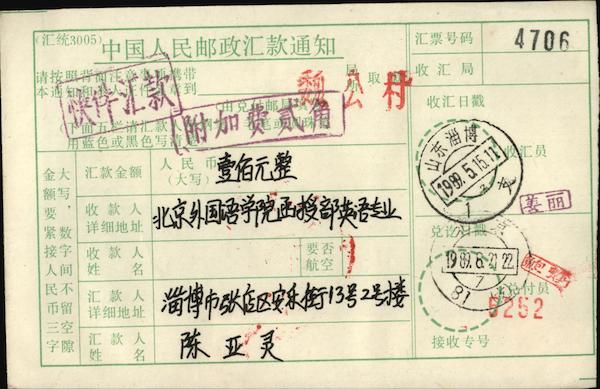 (汇统3005) 中国人民邮政汇款通知
汇票号码 4706
请按照背面注意 携带
本通知和本人证件 章到 取
快件汇款
魏公村
收汇局
收汇日戳
(由兑付局填
附加费贰角
下面五栏请汇款人
用蓝色或黑色写清
汇款金额 人民币(大写) 壹佰元整
收款人详细地址 北京外国语学院函授部英语专业
收款人姓名 要否航空
汇款人详细地址 淄博市张店区安乐街13号2号楼
汇款人姓名 陈亚灵
金额大写要紧接
数字间不留空隙
人民币三字
山东淄博
1989.5.15.17
1 支
收汇员
姜丽
兑讫日戳
1989.6.21.22
7
81
兑付员
5252
接收专号